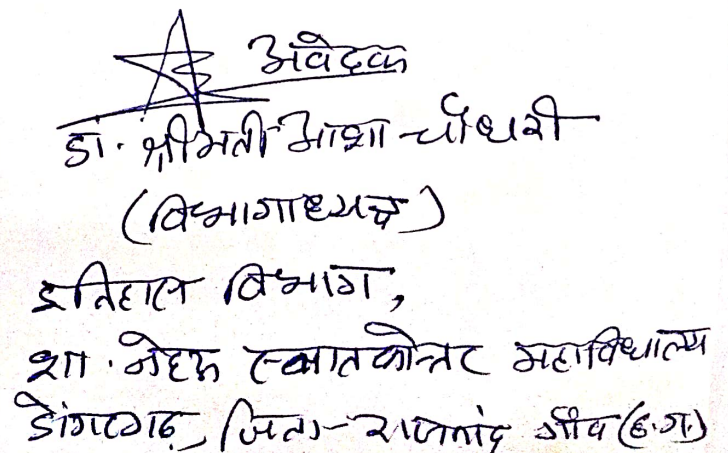 अवेदक
डा. श्रीमती आशा चौधरी
(विभागाध्यक्ष)
इतिहास विभाग,
शा. नेहरू स्नातकोत्तर महाविधालय
डोंगरगढ़, जिला- राजनांद गाँव (छ.ग.)